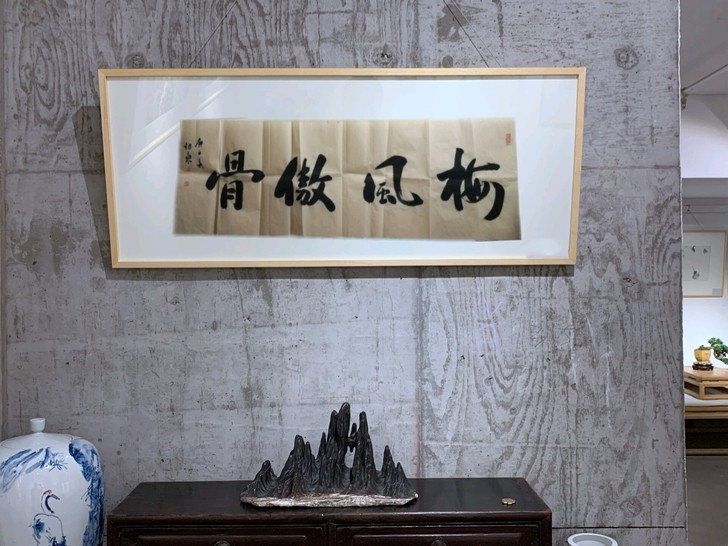 梅風傲骨